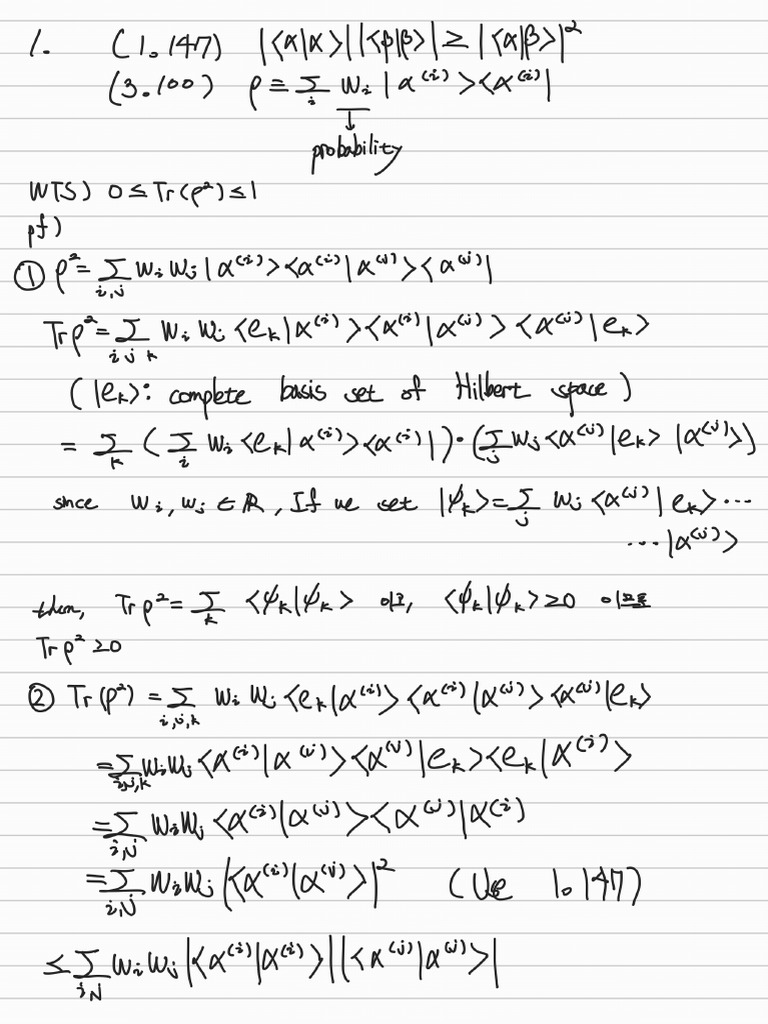 1. (1.147) |<α|α>||<β|β>| ≥ |<α|β>|²
(3.100) ρ ≡ Σ_i w_i |α^(i)><α^(i)|
↓
probability
WTS) 0 ≤ Tr(ρ²) ≤ 1
pf)
① ρ² = Σ_{i,j} w_i w_j |α^(i)><α^(i)|α^(j)><α^(j)|
Tr ρ² = Σ_{i j k} w_i w_j <e_k|α^(i)><α^(i)|α^(j)> <α^(j)|e_k>
(|e_k>: complete basis set of Hilbert space)
= Σ_k (Σ_i w_i <e_k|α^(i)><α^(i)|)·(Σ_j w_j <α^(j)|e_k> |α^(j)>)
since w_i, w_j ∈ ℝ, If we set |ψ_k> = Σ_j w_j <α^(j)|e_k> ...
... |α^(j)>
then, Tr ρ² = Σ_k <ψ_k|ψ_k> 이고, <ψ_k|ψ_k> ≥ 0 이므로
Tr ρ² ≥ 0
② Tr(ρ²) = Σ_{i,j,k} w_i w_j <e_k|α^(i)> <α^(i)|α^(j)> <α^(j)|e_k>
= Σ_{i,j,k} w_i w_j <α^(i)|α^(j)> <α^(j)|e_k><e_k|α^(i)>
= Σ_{i,j} w_i w_j <α^(i)|α^(j)><α^(j)|α^(i)
= Σ_{i,j} w_i w_j |<α^(i)|α^(j)>|² (Use 1.147)
≤ Σ_{i,j} w_i w_j |<α^(i)|α^(i)>||<α^(j)|α^(j)>|